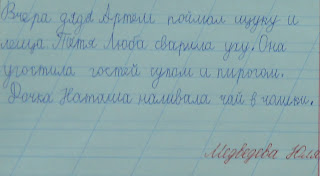 Вчера дядя Артем поймал щуку и
леща Тётя Люба сварила уху. Она
угостила гостей супом и пирогом.
Дочка Наташа наливала чай в чашки.
Медведева Юля